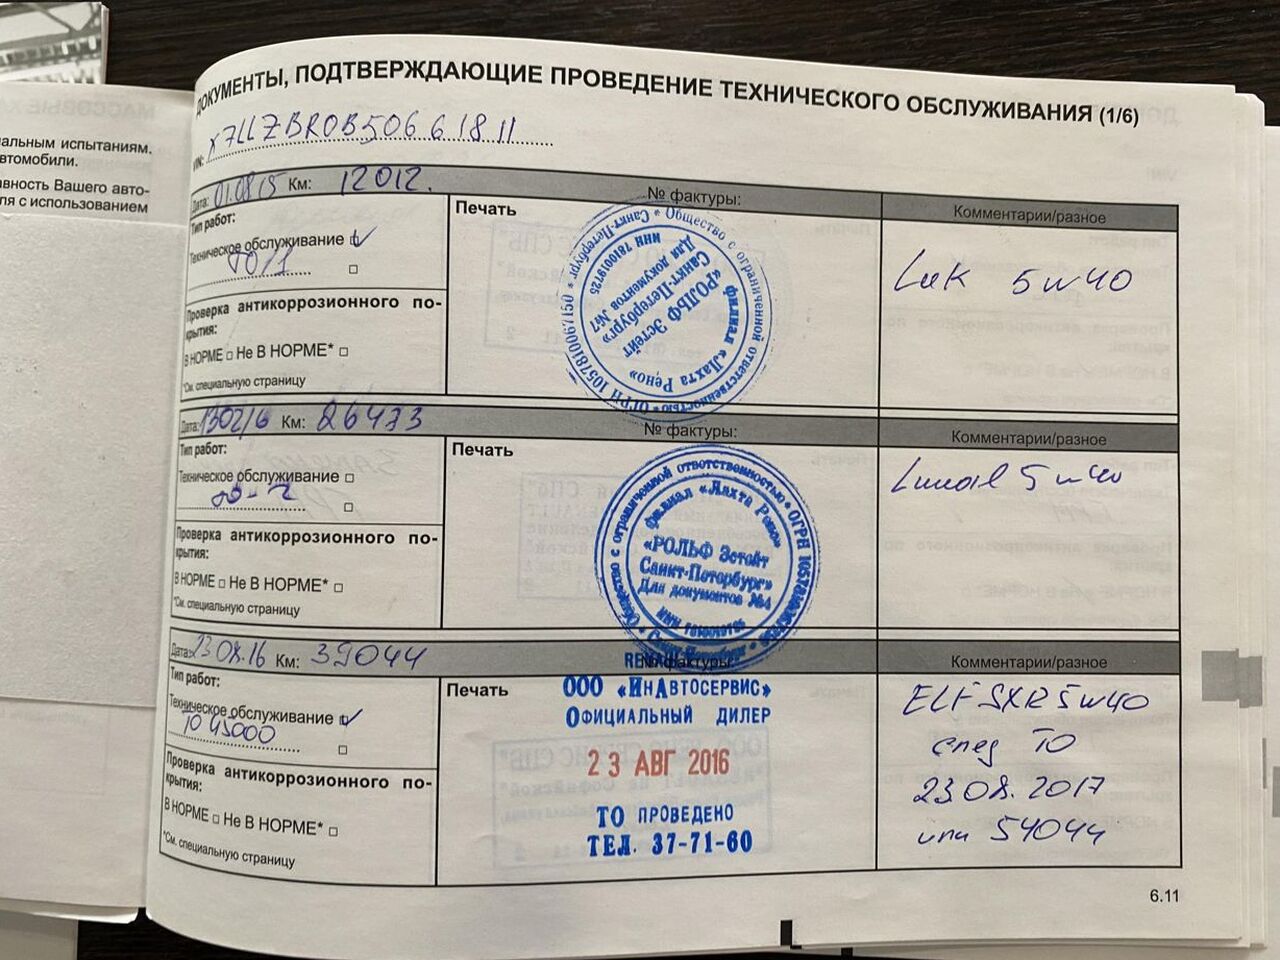 альным испытаниям.
втомобили.
вность Вашего авто-
ля с использованием
ДОКУМЕНТЫ, ПОДТВЕРЖДАЮЩИЕ ПРОВЕДЕНИЕ ТЕХНИЧЕСКОГО ОБСЛУЖИВАНИЯ (1/6)
VIN: X7LLZBR0B50661811
Дата: 01.08.15 Км: 12012. № фактуры: Комментарии/разное
Тип работ:
Техническое обслуживание
Печать
Проверка антикоррозионного по-
крытия:
В НОРМЕ □ Не В НОРМЕ* □
*См. специальную страницу
Общество с ограниченной ответственностью * ОГРН 1057810067150 * Санкт-Петербург *
филиал «Лахта Рено»
«РОЛЬФ Эстейт
Санкт-Петербург»
Для документов №7
ИНН 7810019725
5w40
Дата: 1302/6 Км: 26473 № фактуры: Комментарии/разное
Тип работ:
Техническое обслуживание □
Печать
Проверка антикоррозионного по-
крытия:
В НОРМЕ □ Не В НОРМЕ* □
*См. специальную страницу
Общество с ограниченной ответственностью * ОГРН 1057810067150 * Санкт-Петербург *
филиал «Лахта Рено»
«РОЛЬФ Эстейт
Санкт-Петербург»
Для документов №4
5w40
Дата: 23 08.16 Км: 39044 № фактуры: Комментарии/разное
Тип работ:
Техническое обслуживание
ТО 45000
Печать
Проверка антикоррозионного по-
крытия:
В НОРМЕ □ Не В НОРМЕ* □
*См. специальную страницу
ООО «ИнАвтосервис»
Официальный дилер
23 АВГ 2016
ТО проведено
ТЕЛ. 37-71-60
ELF SXR 5w40
след ТО
23.08.2017
или 54044
6.11